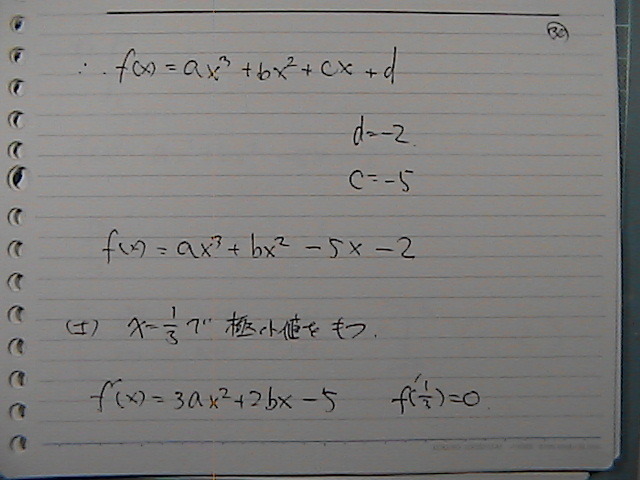 ㉚
∴ f(x) = ax³ + bx² + cx + d
d = -2.
c = -5
f(x) = ax³ + bx² - 5x - 2
x = 1/3 で 極小値を もつ.
f'(x) = 3ax² + 2bx - 5 f'(1/3) = 0.